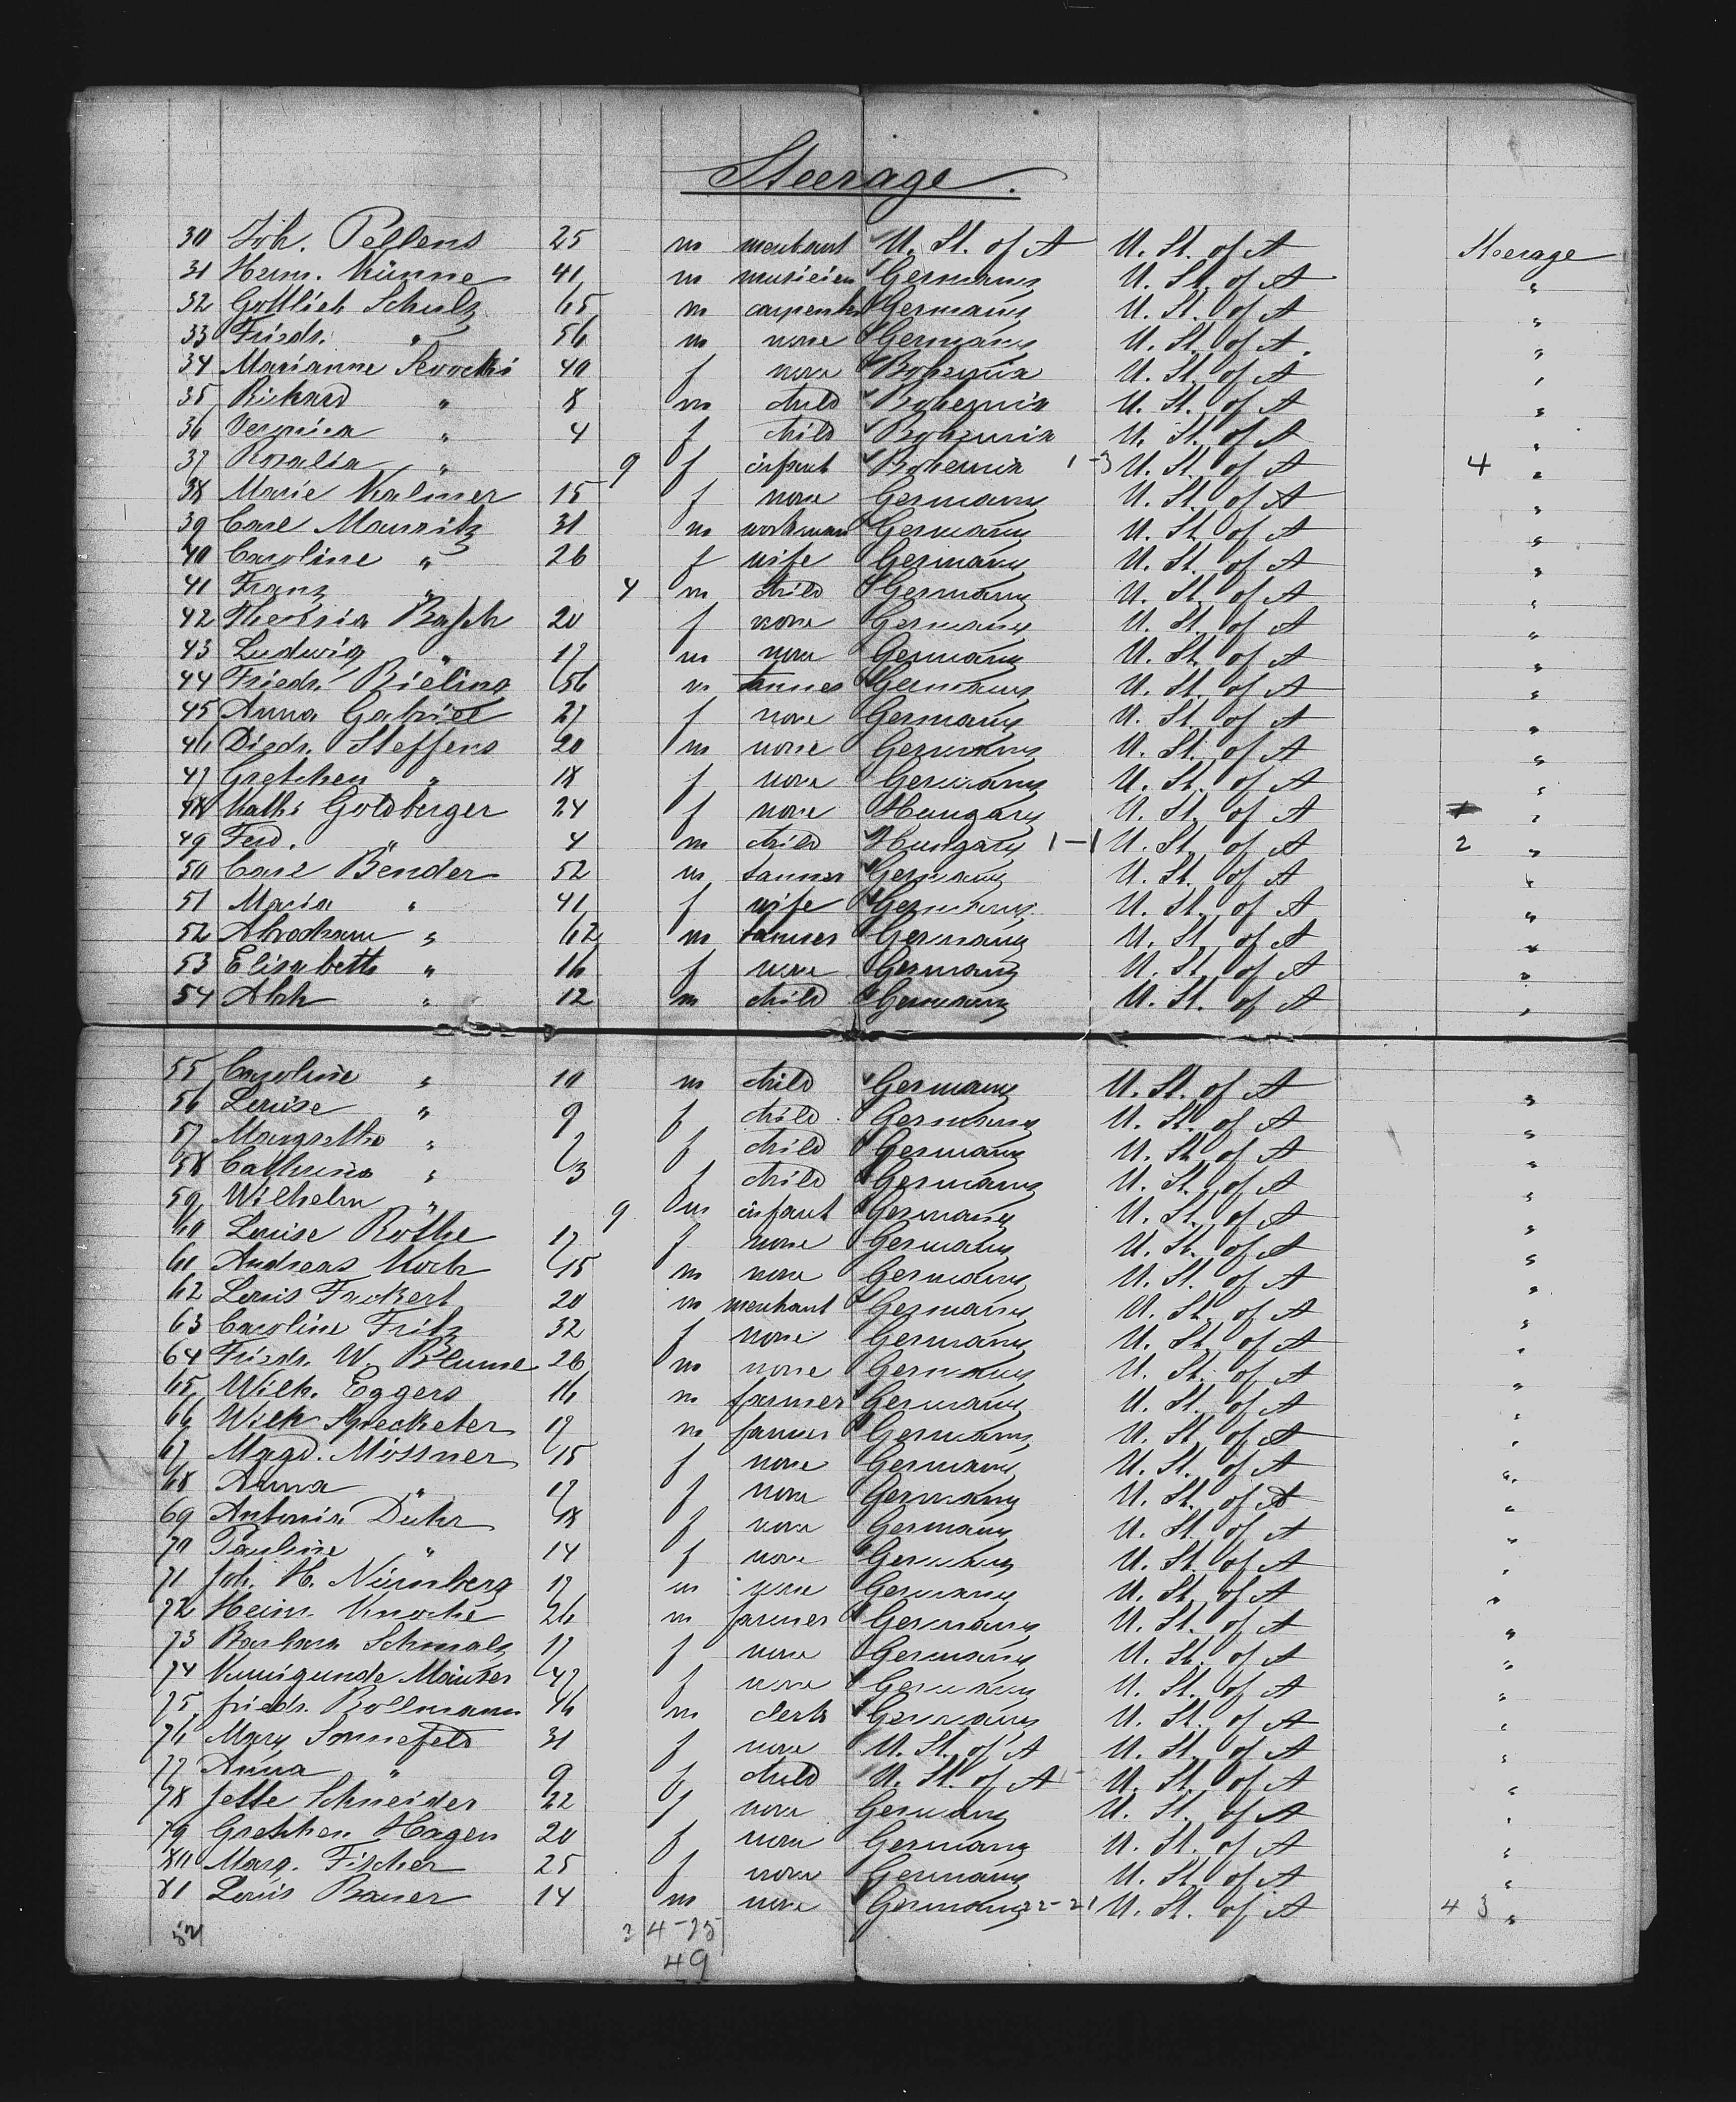 Steerage.
30 Joh. Pellens 25 m merchant U. St. of A U. St. of A Steerage
31 Herm. Künne 41 m musicien Germany U. St. of A "
32 Gottlieb Schulz 65 m carpenter Germany U. St. of A "
33 Friedr. " 56 m none Germany U. St. of A. "
34 Marianne 40 f none Bohemia U. St. of A "
35 Richard " 8 m child Bohemia U. St. of A "
36 Veronica " 4 f child Bohemia U. St. of A "
37 Rosalia " 9 f infant Bohemia 1-3 U. St. of A 4 "
38 Marie Kalmer 15 f none Germany U. St. of A "
39 Carl Mauritz 31 m workman Germany U. St. of A "
40 Caroline " 26 f wife Germany U. St. of A "
41 Franz " 4 m child Germany U. St. of A "
42 Theresia Basch 20 f none Germany U. St. of A "
43 Ludwig " 17 m none Germany U. St. of A "
44 Friedr. Rieling 56 m Germany U. St. of A "
45 Anna Gabriel 27 f none Germany U. St. of A "
46 Diedr. Steffens 20 m none Germany U. St. of A "
47 Gretchen " 18 f none Germany U. St. of A "
48 Kathi Goldberger 24 f none Hungary U. St. of A "
49 Ferd. " 4 m child Hungary 1-1 U. St. of A 2 "
50 Carl Bender 52 m Germany U. St. of A "
51 Maria " 41 f wife Germany U. St. of A "
52 Abraham " 62 m Germany U. St. of A "
53 Elisabeth " 16 f none Germany U. St. of A "
54 Abh " 12 m child Germany U. St. of A "
55 Caroline " 10 m child Germany U. St. of A "
56 Louise " 9 f child Germany U. St. of A "
57 Margretha " 7 f child Germany U. St. of A "
58 Cathrina " 3 f child Germany U. St. of A "
59 Wilhelm " 9 m infant Germany U. St. of A "
60 Louise Rothe 17 f none Germany U. St. of A "
61 Andreas Koch 15 m none Germany U. St. of A "
62 Louis Fackert 20 m merchant Germany U. St. of A "
63 Caroline Fritz 32 f none Germany U. St. of A "
64 Friedr. W. Blume 26 m none Germany U. St. of A "
65 Wilh. Eggers 16 m farmer Germany U. St. of A "
66 Wilh Specketer 17 m farmer Germany U. St. of A "
67 Magd. Mössner 15 f none Germany U. St. of A "
68 Anna " 17 f none Germany U. St. of A "
69 Antonia Duhr 18 f none Germany U. St. of A "
70 Pauline " 14 f none Germany U. St. of A "
71 Joh. H. Nürnberg 17 m none Germany U. St. of A "
72 Heinr. Knoche 26 m farmer Germany U. St. of A "
73 Barbara Schmalz 17 f none Germany U. St. of A "
74 Kunigunde 47 f none Germany U. St. of A "
75 Friedr. Bollmann 16 m clerk Germany U. St. of A "
76 Mary Sonnefeld 31 f none U. St. of A U. St. of A "
77 Anna " 9 f child U. St. of A U. St. of A "
78 Jette Schneider 22 f none Germany U. St. of A "
79 Gretchen Hagen 20 f none Germany U. St. of A "
80 Marg. Fischer 25 f none Germany U. St. of A "
81 Louis Bauer 14 m none Germany 22-21 U. St. of A 43 "
52 3 4-25
49